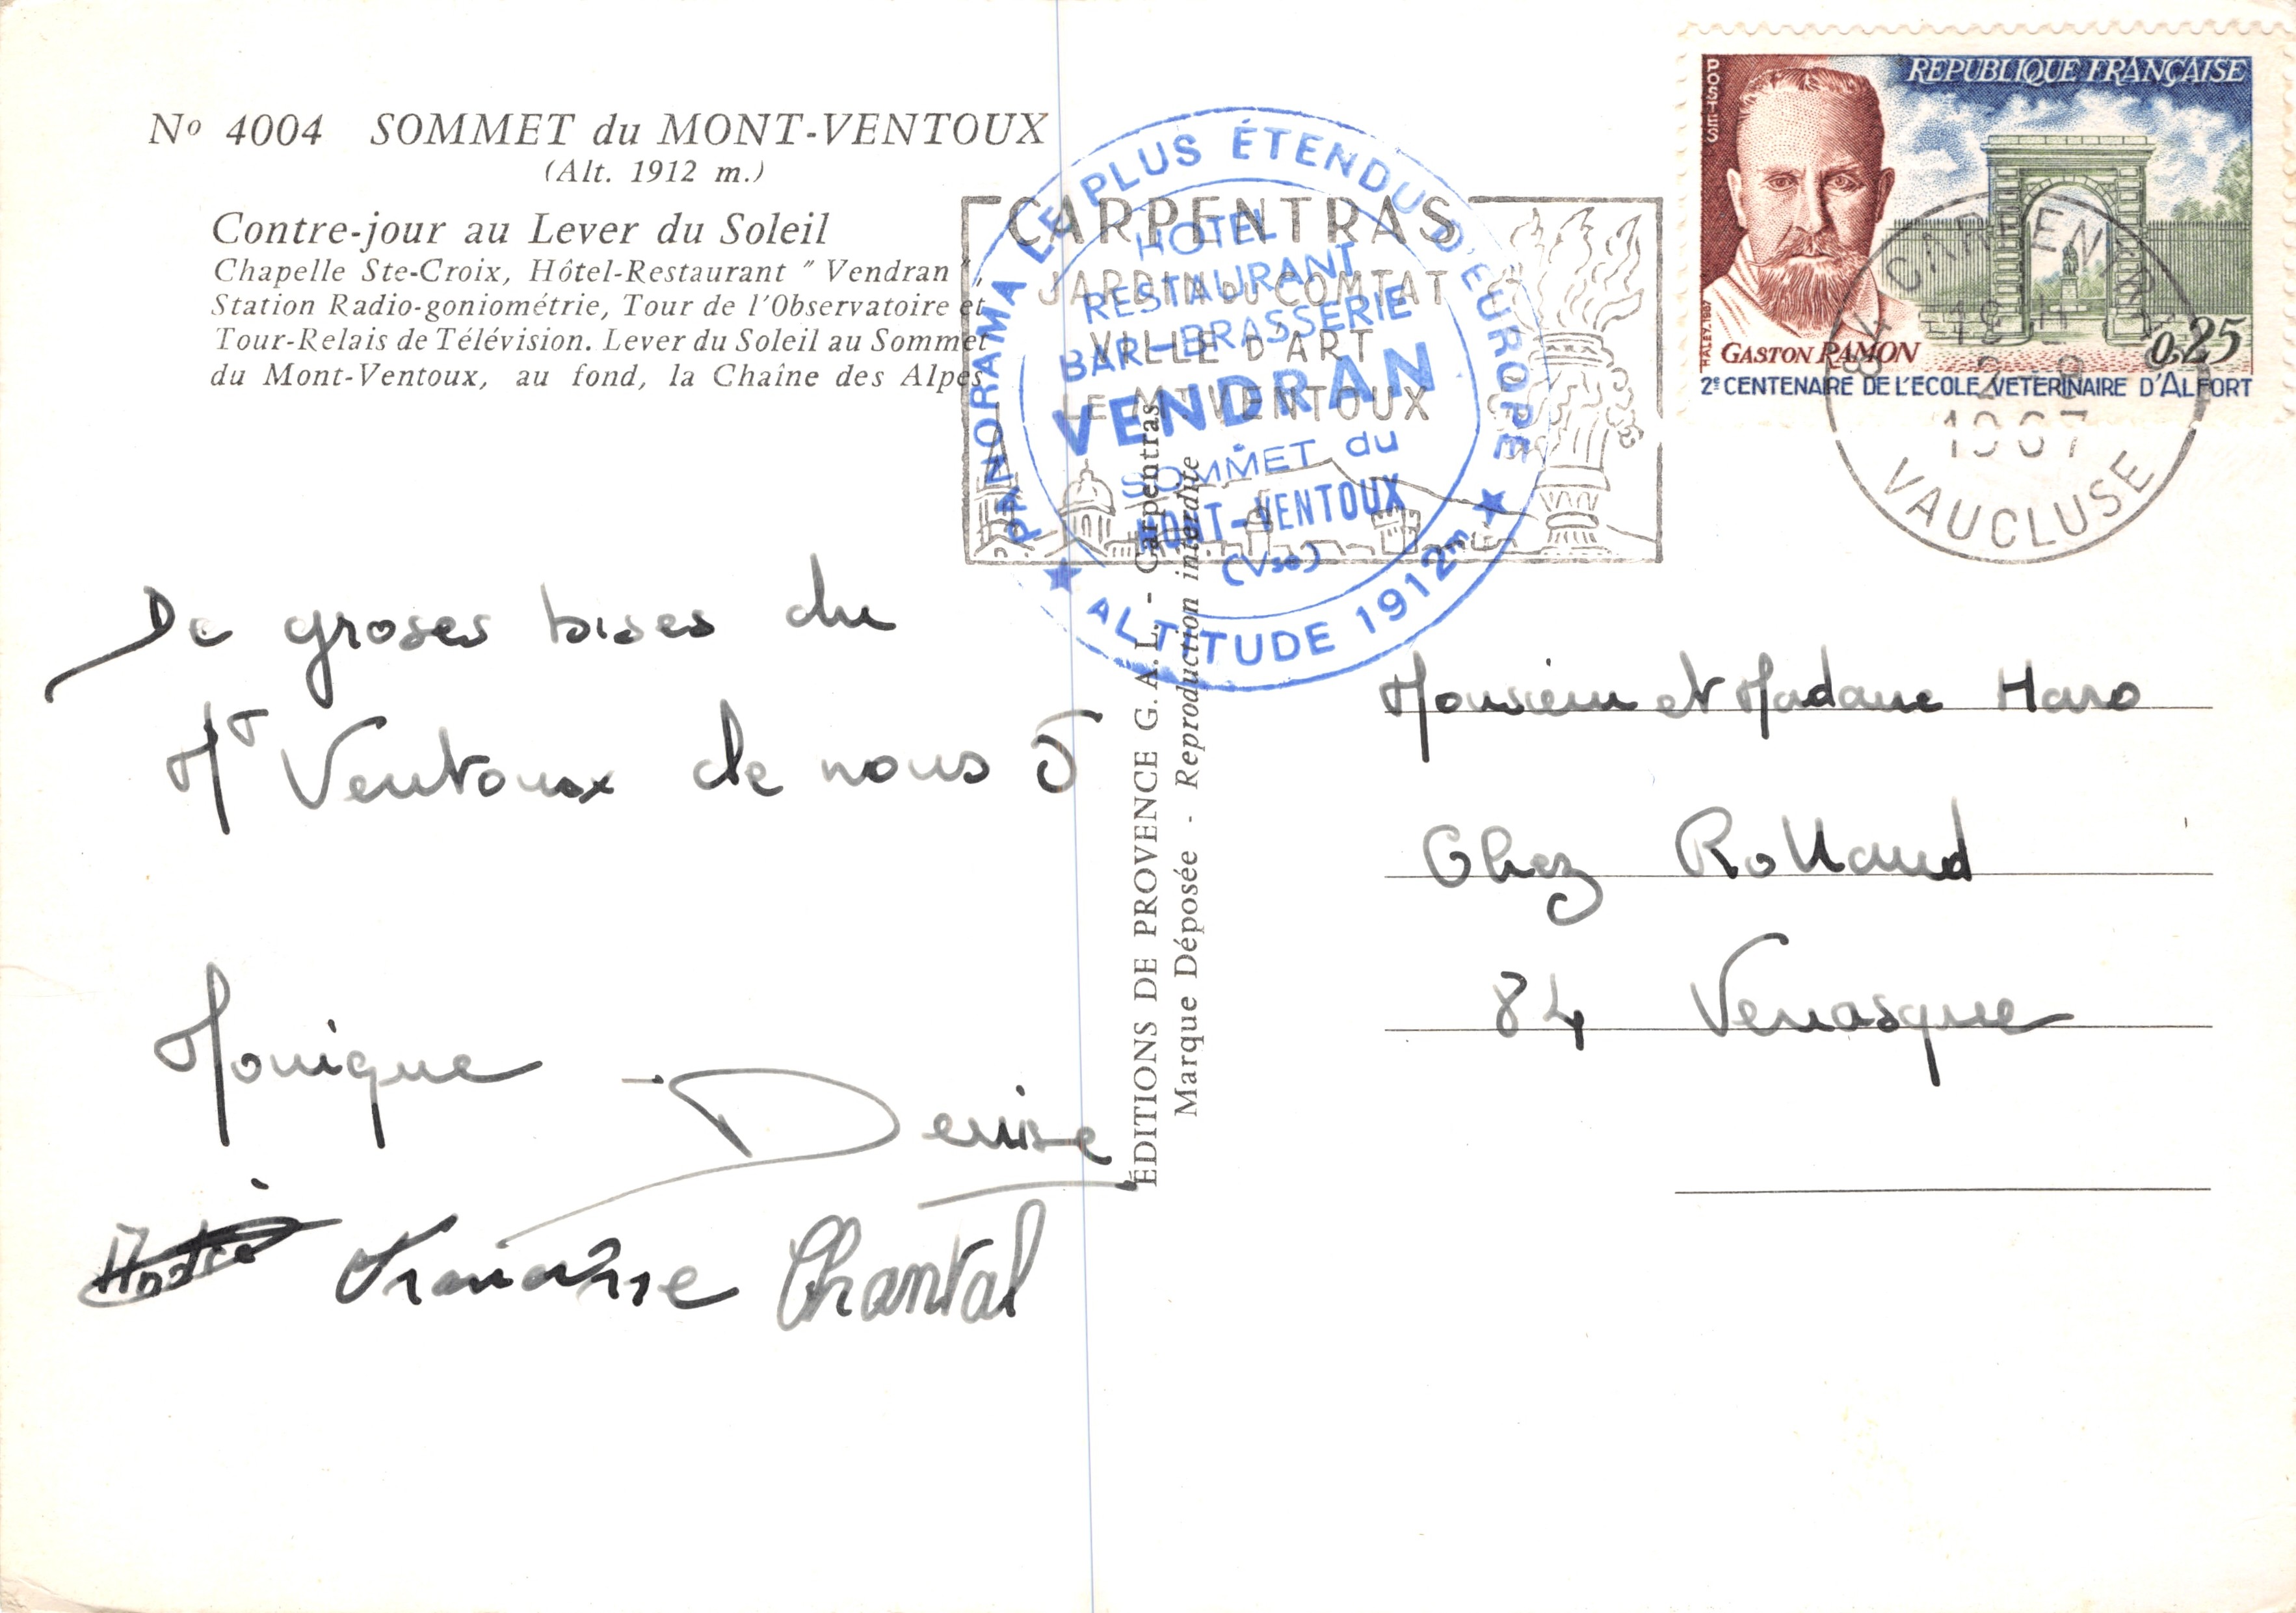 N° 4004 SOMMET du MONT-VENTOUX
(Alt. 1912 m.)
Contre-jour au Lever du Soleil
Chapelle Ste-Croix, Hôtel-Restaurant "Vendran",
Station Radio-goniométrie, Tour de l'Observatoire et
Tour-Relais de Télévision. Lever du Soleil au Sommet
du Mont-Ventoux, au fond, la Chaîne des Alpes
De groses bises du
Mt Ventoux de nous 5
Monique
Denise
Françoise Chantal
ÉDITIONS DE PROVENCE G.A.L. - Carpentras
Marque Déposée - Reproduction interdite
PANORAMA LE PLUS ÉTENDU D'EUROPE
HOTEL
RESTAURANT
BAR-BRASSERIE
VENDRAN
SOMMET du
MONT-VENTOUX
(Vse)
★ ALTITUDE 1912m ★
CARPENTRAS
JARDIN DU COMTAT
VILLE D'ART
LE MT VENTOUX
POSTES
REPUBLIQUE FRANÇAISE
HALEY.1967
GASTON RAMON
0,25
2e CENTENAIRE DE L'ECOLE VETERINAIRE D'ALFORT
84 CARPENTRAS
1967
VAUCLUSE
Monsieur et Madame Haro
Chez Rolland
84 Venasque